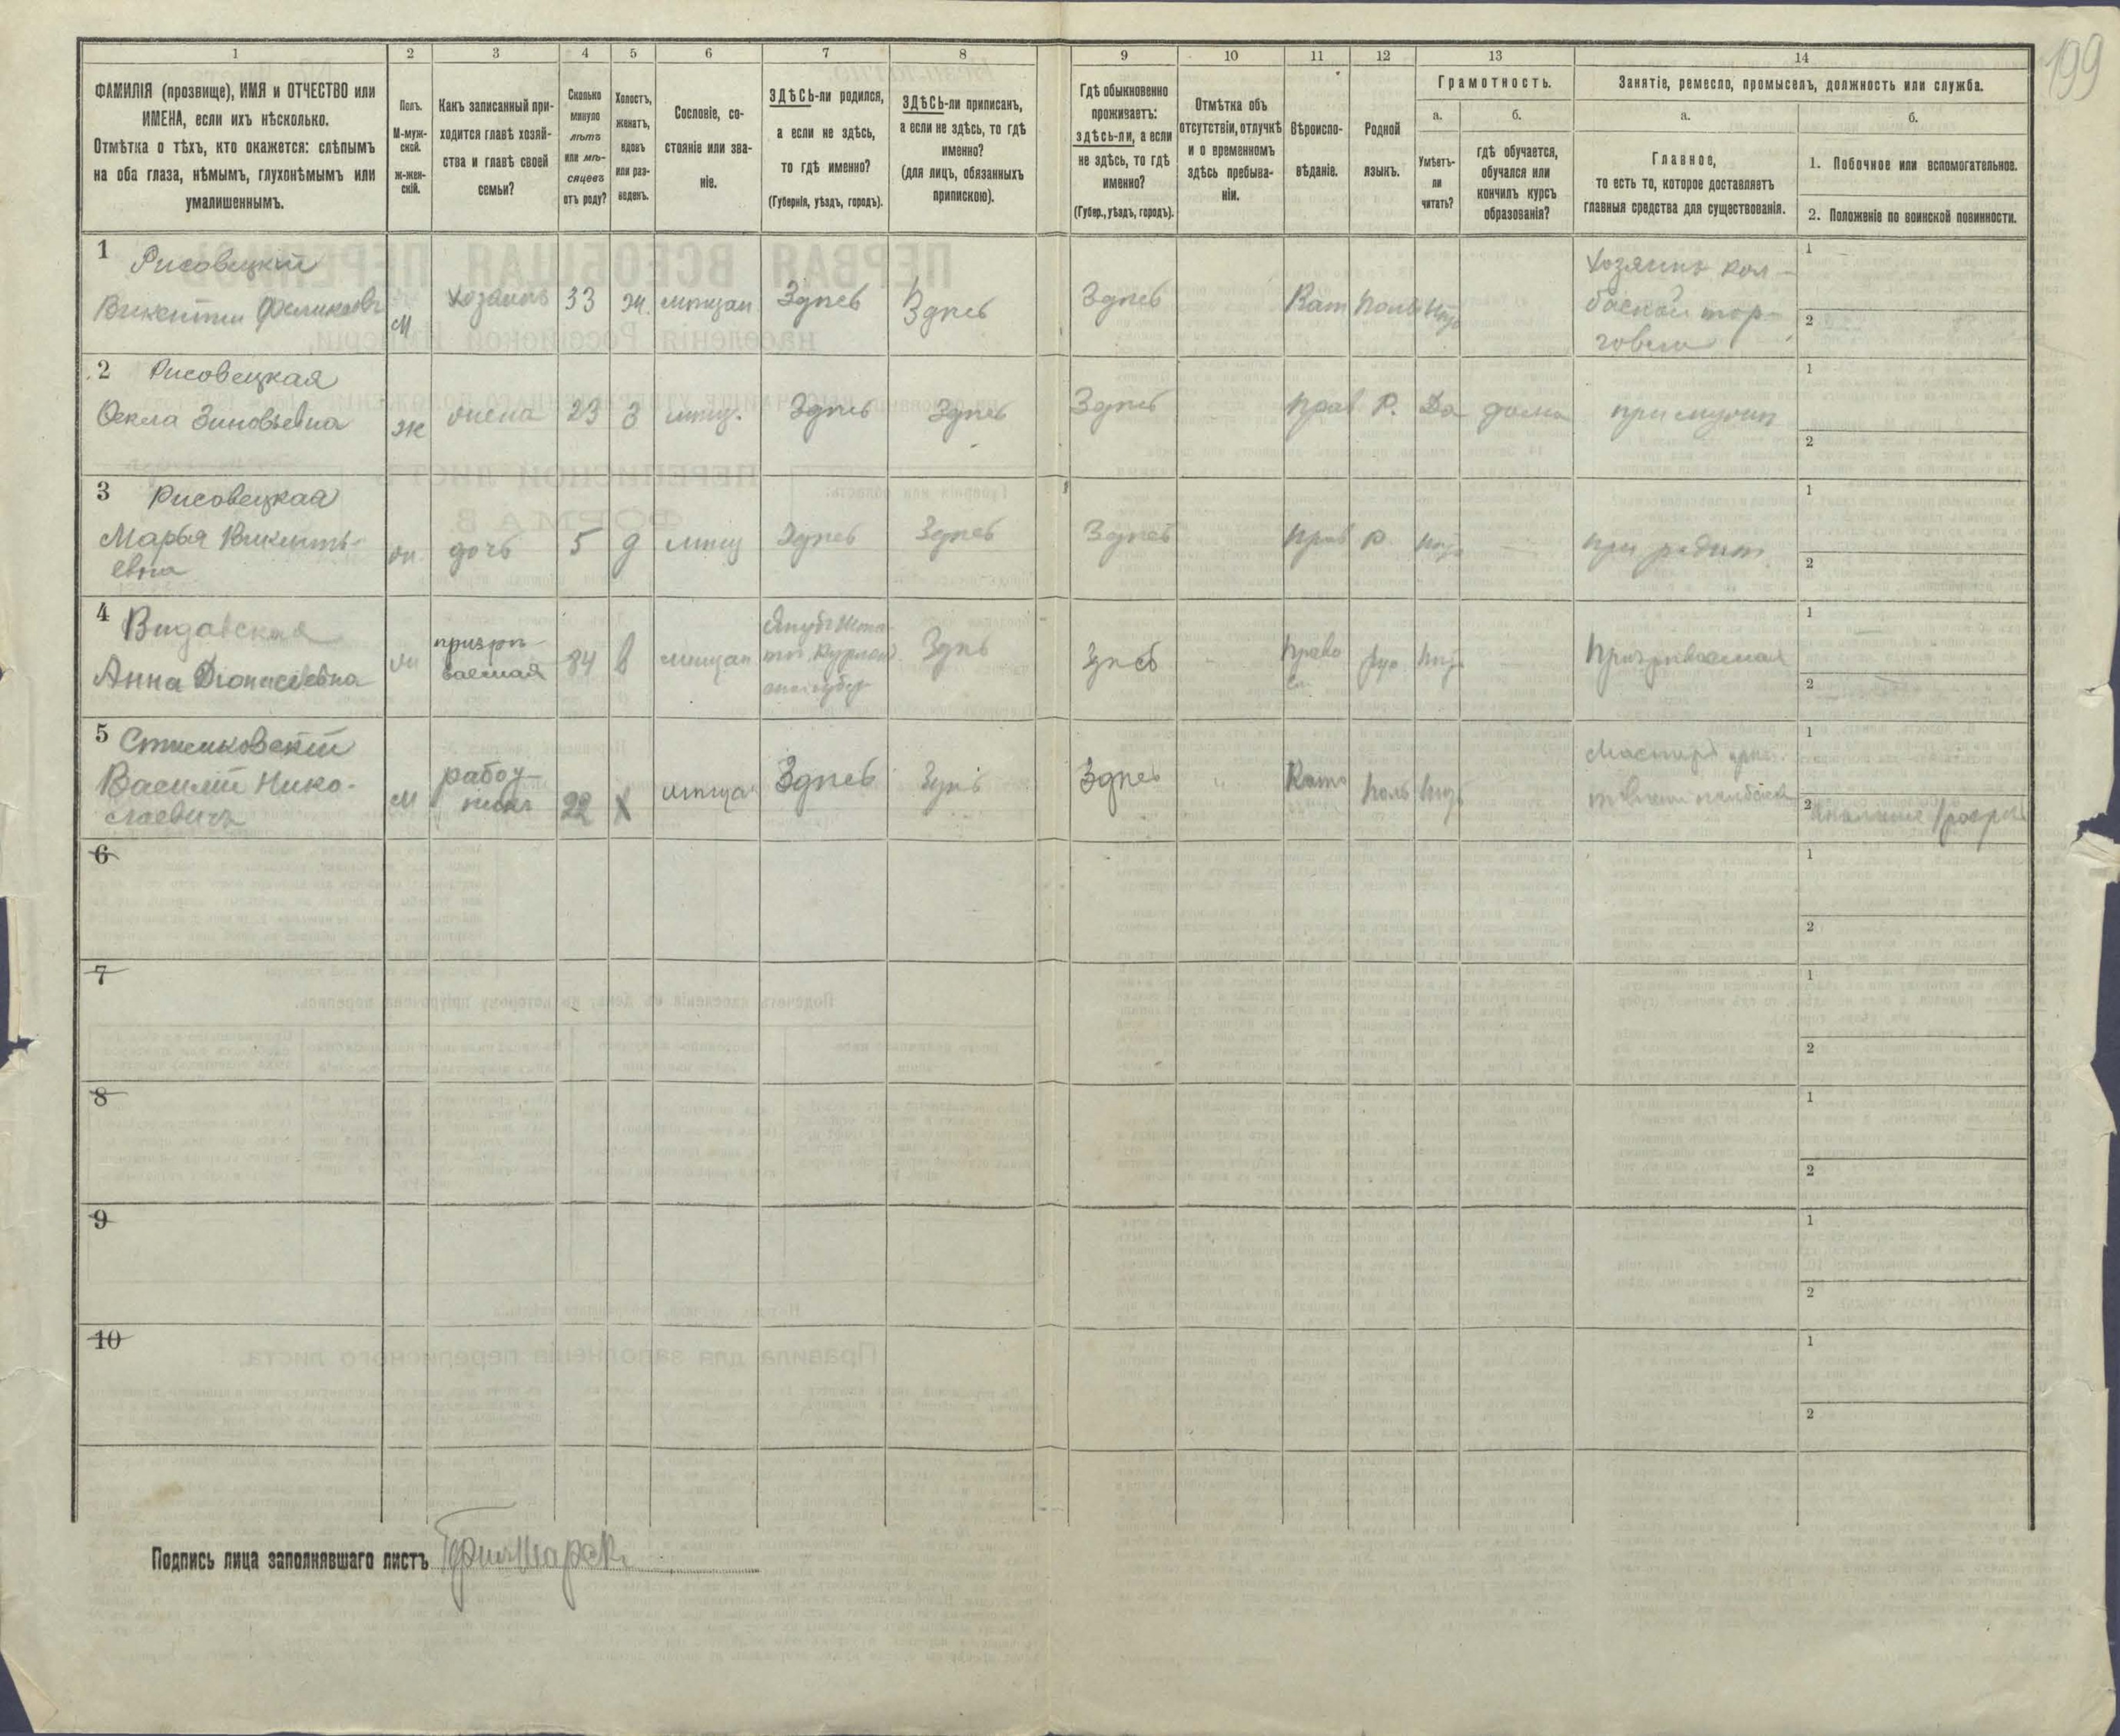 199
1 2 3 4 5 6 7 8 9 10 11 12 13 14
ФАМИЛІЯ (прозвище), ИМЯ и ОТЧЕСТВО или
ИМЕНА, если ихъ нѣсколько.
Отмѣтка о тѣхъ, кто окажется: слѣпымъ
на оба глаза, нѣмымъ, глухонѣмымъ или
умалишеннымъ.
Полъ.
М-муж-
ской.
ж-жен-
скій.
Какъ записанный при-
ходится главѣ хозяй-
ства и главѣ своей
семьи?
Сколько
минуло
лѣтъ
или мѣ-
сяцевъ
отъ роду?
Холостъ,
женатъ,
вдовъ
или раз-
веденъ.
Сословіе, со-
стояніе или зва-
ніе.
ЗДѢСЬ-ли родился,
а если не здѣсь,
то гдѣ именно?
(Губернія, уѣздъ, городъ).
ЗДѢСЬ-ли приписанъ,
а если не здѣсь, то гдѣ
именно?
(для лицъ, обязанныхъ
припискою).
Гдѣ обыкновенно
проживаетъ:
здѣсь-ли, а если
не здѣсь, то гдѣ
именно?
(Губер., уѣздъ, городъ).
Отмѣтка объ
отсутствіи, отлучкѣ
и о временномъ
здѣсь пребыва-
ніи.
Вѣроиспо-
вѣданіе.
Родной
языкъ.
Грамотность.
а.
Умѣетъ-
ли
читать?
б.
гдѣ обучается,
обучался или
кончилъ курсъ
образованія?
Занятіе, ремесло, промыселъ, должность или служба.
а.
Главное,
то есть то, которое доставляетъ
главныя средства для существованія.
б.
1. Побочное или вспомогательное.
2. Положеніе по воинской повинности.
1 Рисовецкій
Викентий Феликсовъ М хозяинъ 33 ж. мѣщан Здѣсь Здѣсь Здѣсь Кат Поль Нѣтъ
Хозяинъ кол-
басной тор-
говли
1
2
2 Рисовецкая
Фекла Зиновьевна ж жена 23 З мѣщ. Здѣсь Здѣсь Здѣсь Прав Р. Да дома при мужѣ
1
2
3 Рисовецкая
Марья Викенть-
евна
ж дочь 5 д мѣщ Здѣсь Здѣсь Здѣсь Прав Р. Нѣтъ — при родит.
1
2
4
Анна Діонисіевна ж
призрѣ-
ваемая
84 в мѣщан
Здѣсь Здѣсь
Право
сл
Рус Нѣтъ — Призрѣваемая
1
2
5
Василій Нико-
лаевичъ
М
работ-
никъ
22 х мѣщан Здѣсь Здѣсь Здѣсь " Като Поль Нѣтъ
Мастеръ
1
2
6
1
2
7
1
2
8
1
2
9
1
2
10
1
2
Подпись лица заполнявшаго листъ